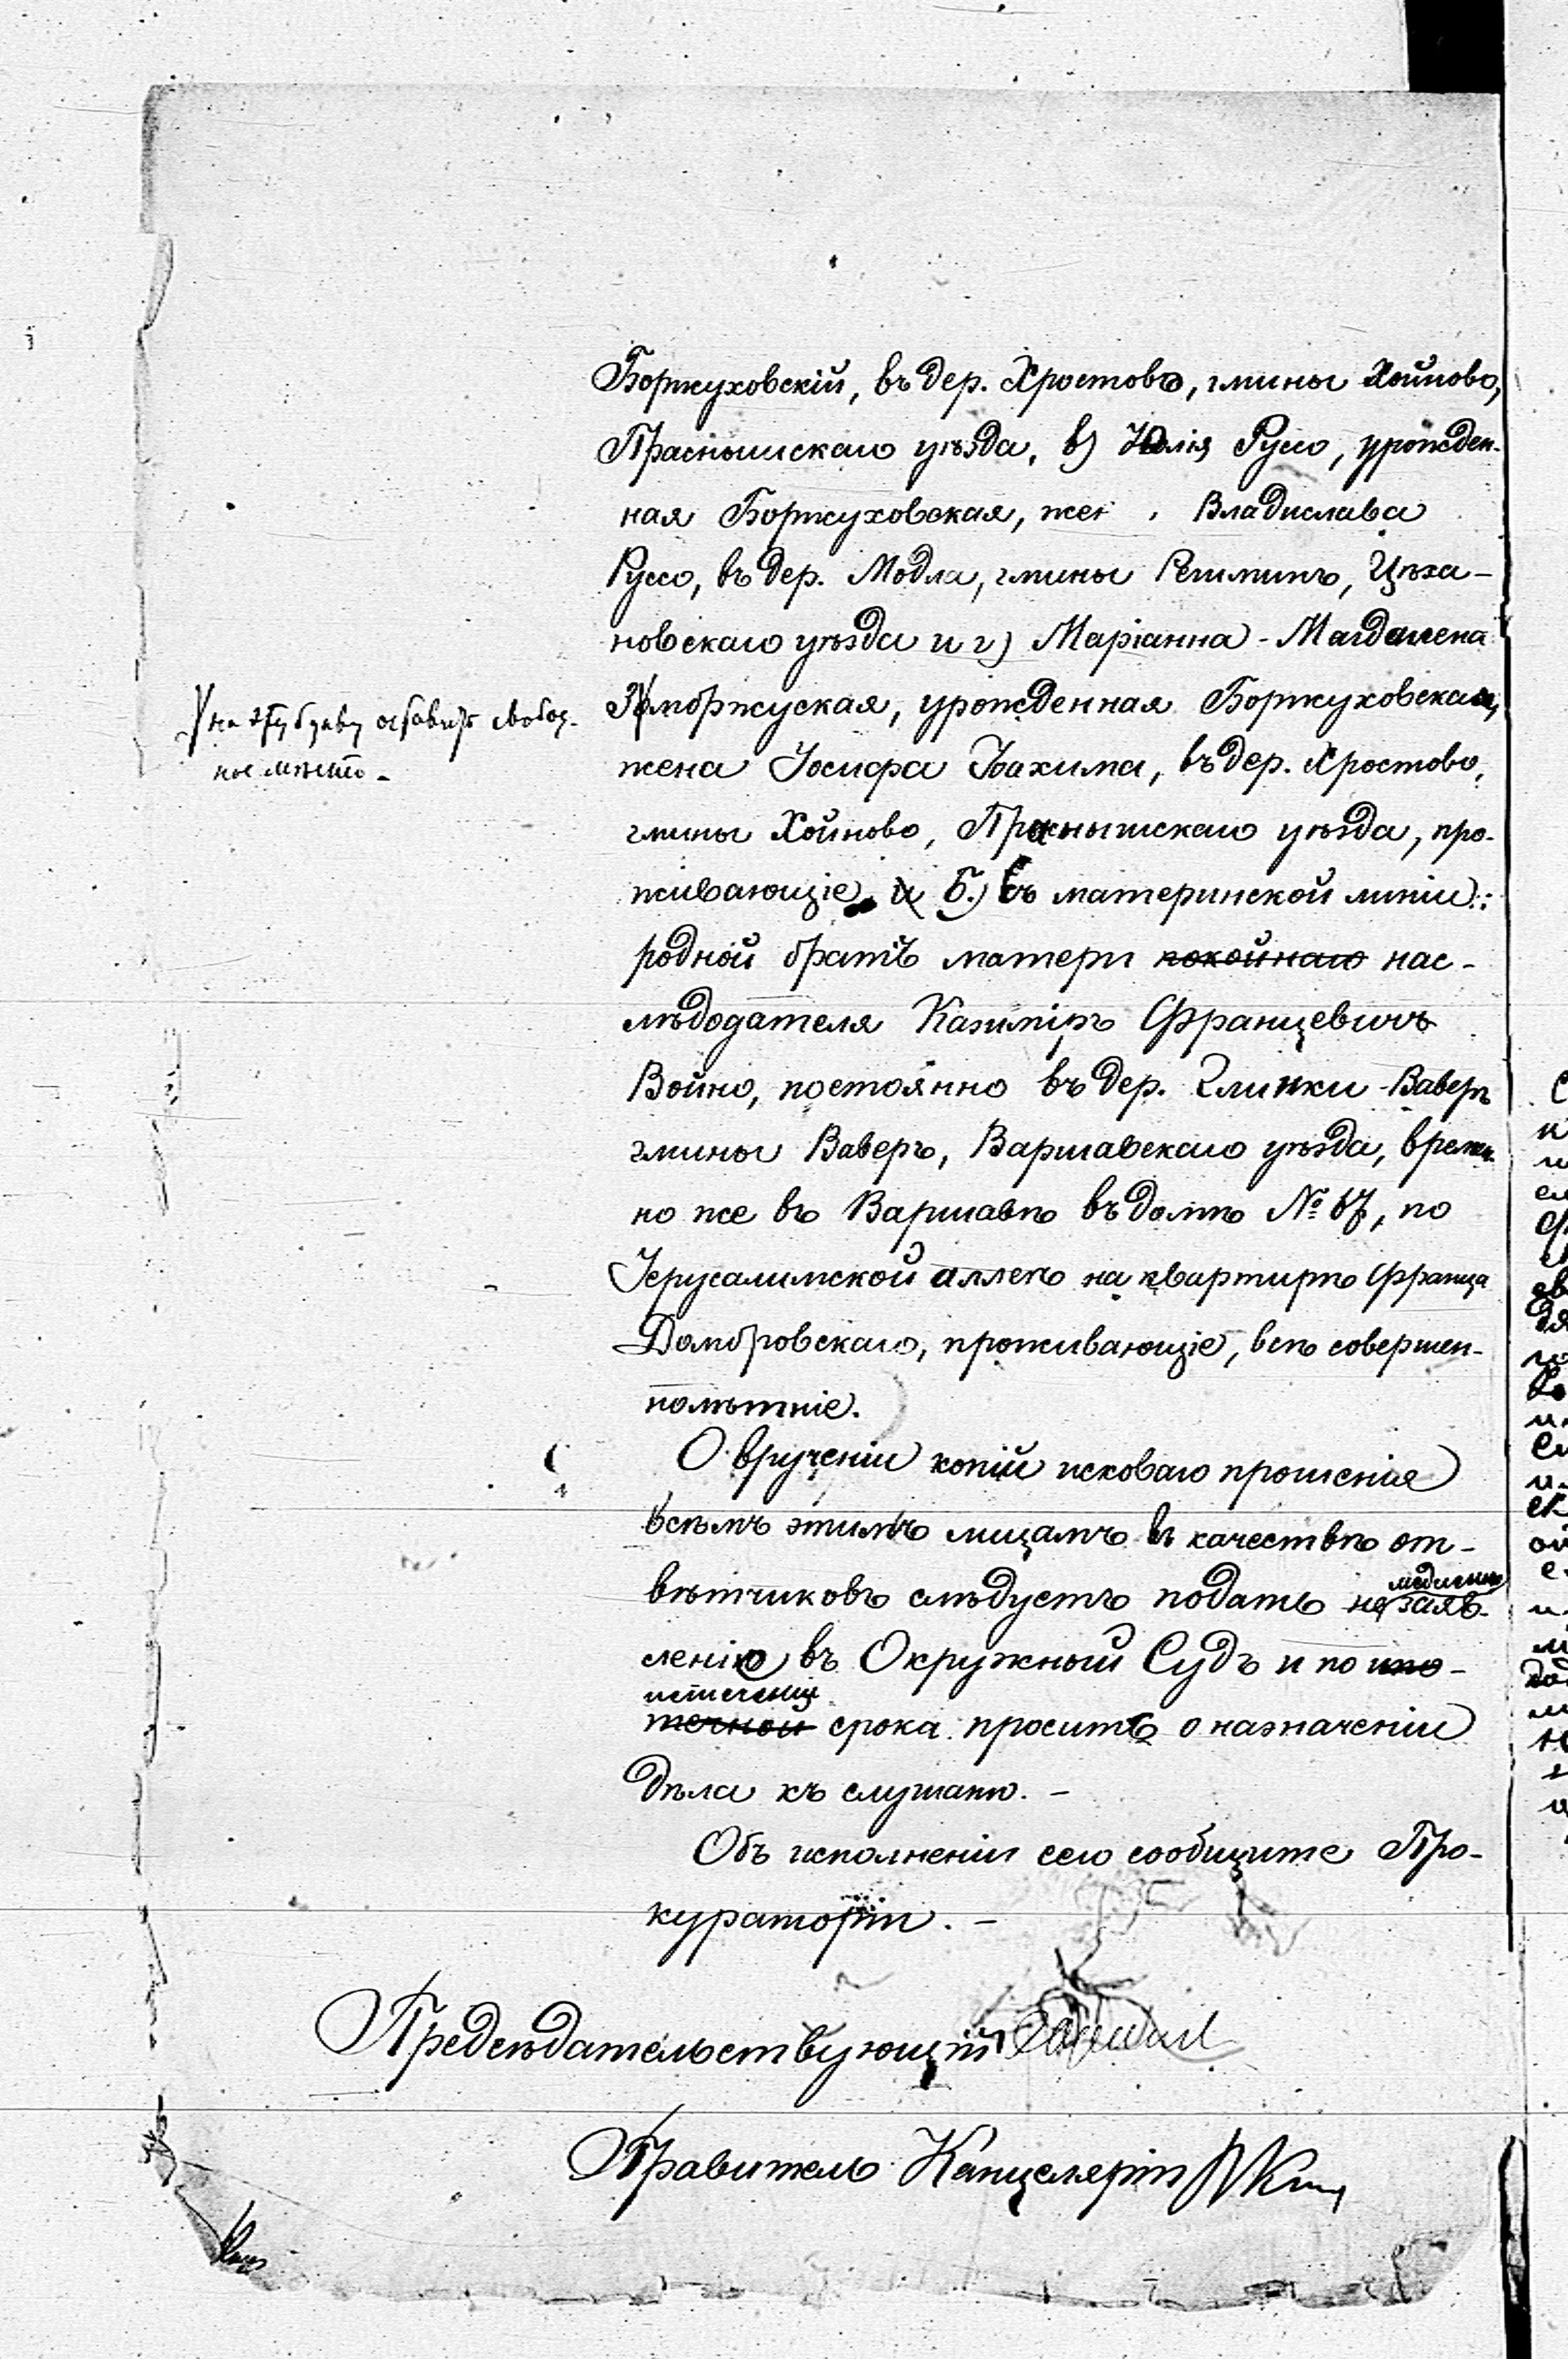 Боржуховскій, въ дер. Хростово, гмины Хойново,
Праснышскаго уѣзда, в) Юлія Руссо, урожден-
ная Боржуховская, жен Владислава
Руссо, въ дер. Модла, гмины Регимин, Цѣха-
новскаго уѣзда и г) Маріанна-Магдалена
Замбржуская, урожденная Боржуховская,
на эту букву оставить свобод-
ное мѣсто.-
жена Іосифа Іоахима, въ дер. Хростово,
гмины Хойново, Праснышскаго уѣзда, про-
живающіе, и Б.) въ материнской линіи:
родной братъ матери покойнаго нас-
лѣдодателя Казиміръ Францевичъ
Войно, постоянно въ дер. Глинки-Ваверъ
гмины Ваверъ, Варшавскаго уѣзда, времен-
но же въ Варшавѣ въ домѣ № 67, по
Іерусалимской аллеѣ на квартирѣ Франца
Домбровскаго, проживающіе, всѣ совершен-
нолѣтніе.
О врученіи копій исковаго прошенія
всѣмъ этимъ лицамъ въ качествѣ от-
вѣтчиковъ слѣдуетъ подать не медленно заяв-
леніе въ Окружный Судъ и по ис-
истеченіи
течніи срока просить о назначеніи
дѣла къ слушанію.-
Объ исполненіи сего сообщите Про-
кураторіи.-
Предсѣдательствующій
Правитель Канцеляріи